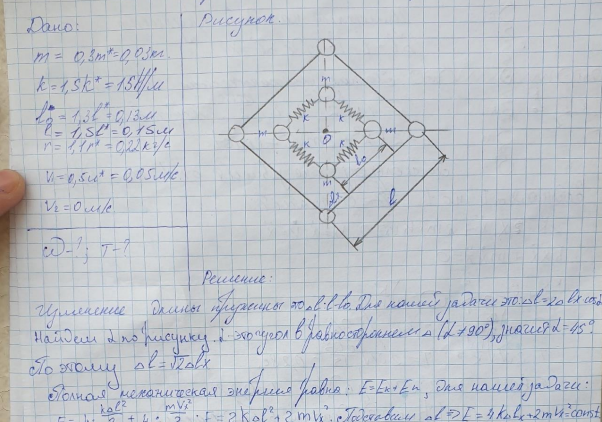 Дано:
m = 0,3m* = 0,03 кг.
k = 1,5k* = 15 Н/м
l₀ = 1,3l* = 0,13 м
l = 1,5l* = 0,15 м
r = 1,1r* = 0,22 кг/с
V₁ = 0,5u* = 0,05 м/с
V₂ = 0 м/с
ω-?; T-?
Рисунок.
m
k k
m m
O
k k
m
l₀
l
Решение:
Изменение длины пружины это Δl=l-l₀. Для нашей задачи это: Δl=2Δlx
Найдем α по рисунку. α это угол в равностороннем Δ (L90°), значит α=45°
Поэтому Δl=√2Δlx
Полная механическая энергия равна: E=Eк+Eп, для нашей задачи:
Подставим Δl ⇒ E=4kΔlx+2mVi²=const